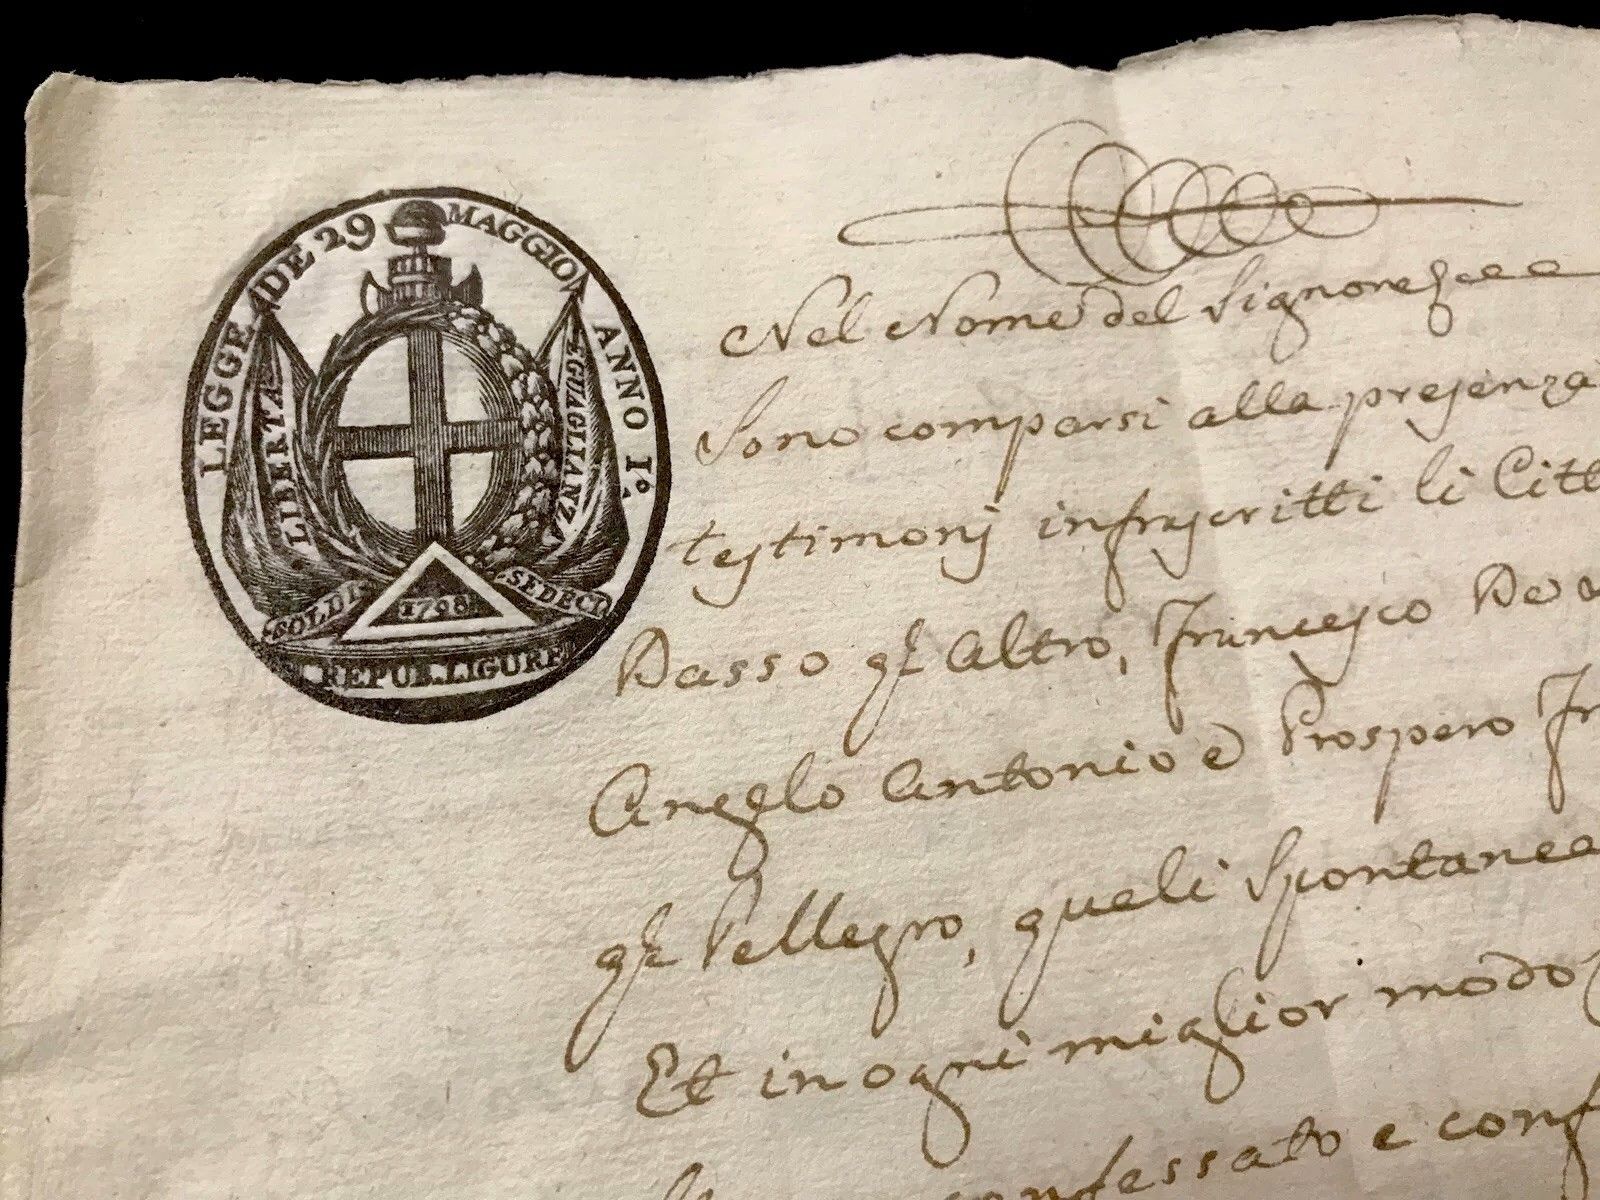 LEGGE DE 29 MAGGIO ANNO I.º
LIBERTA
EGUAGLIANZA
SOLDI
SEDECI
1798
REPUB. LIGURE
Nel Nome del Signore
Sono comparsi alla presenza
testimonj infrascritti li Citt
Dasso qº altro, Francesco De
Angelo Antonio e Prospero Fr
Pellegro, queli spontanea
Et in ogni miglior modo
confessato e conf